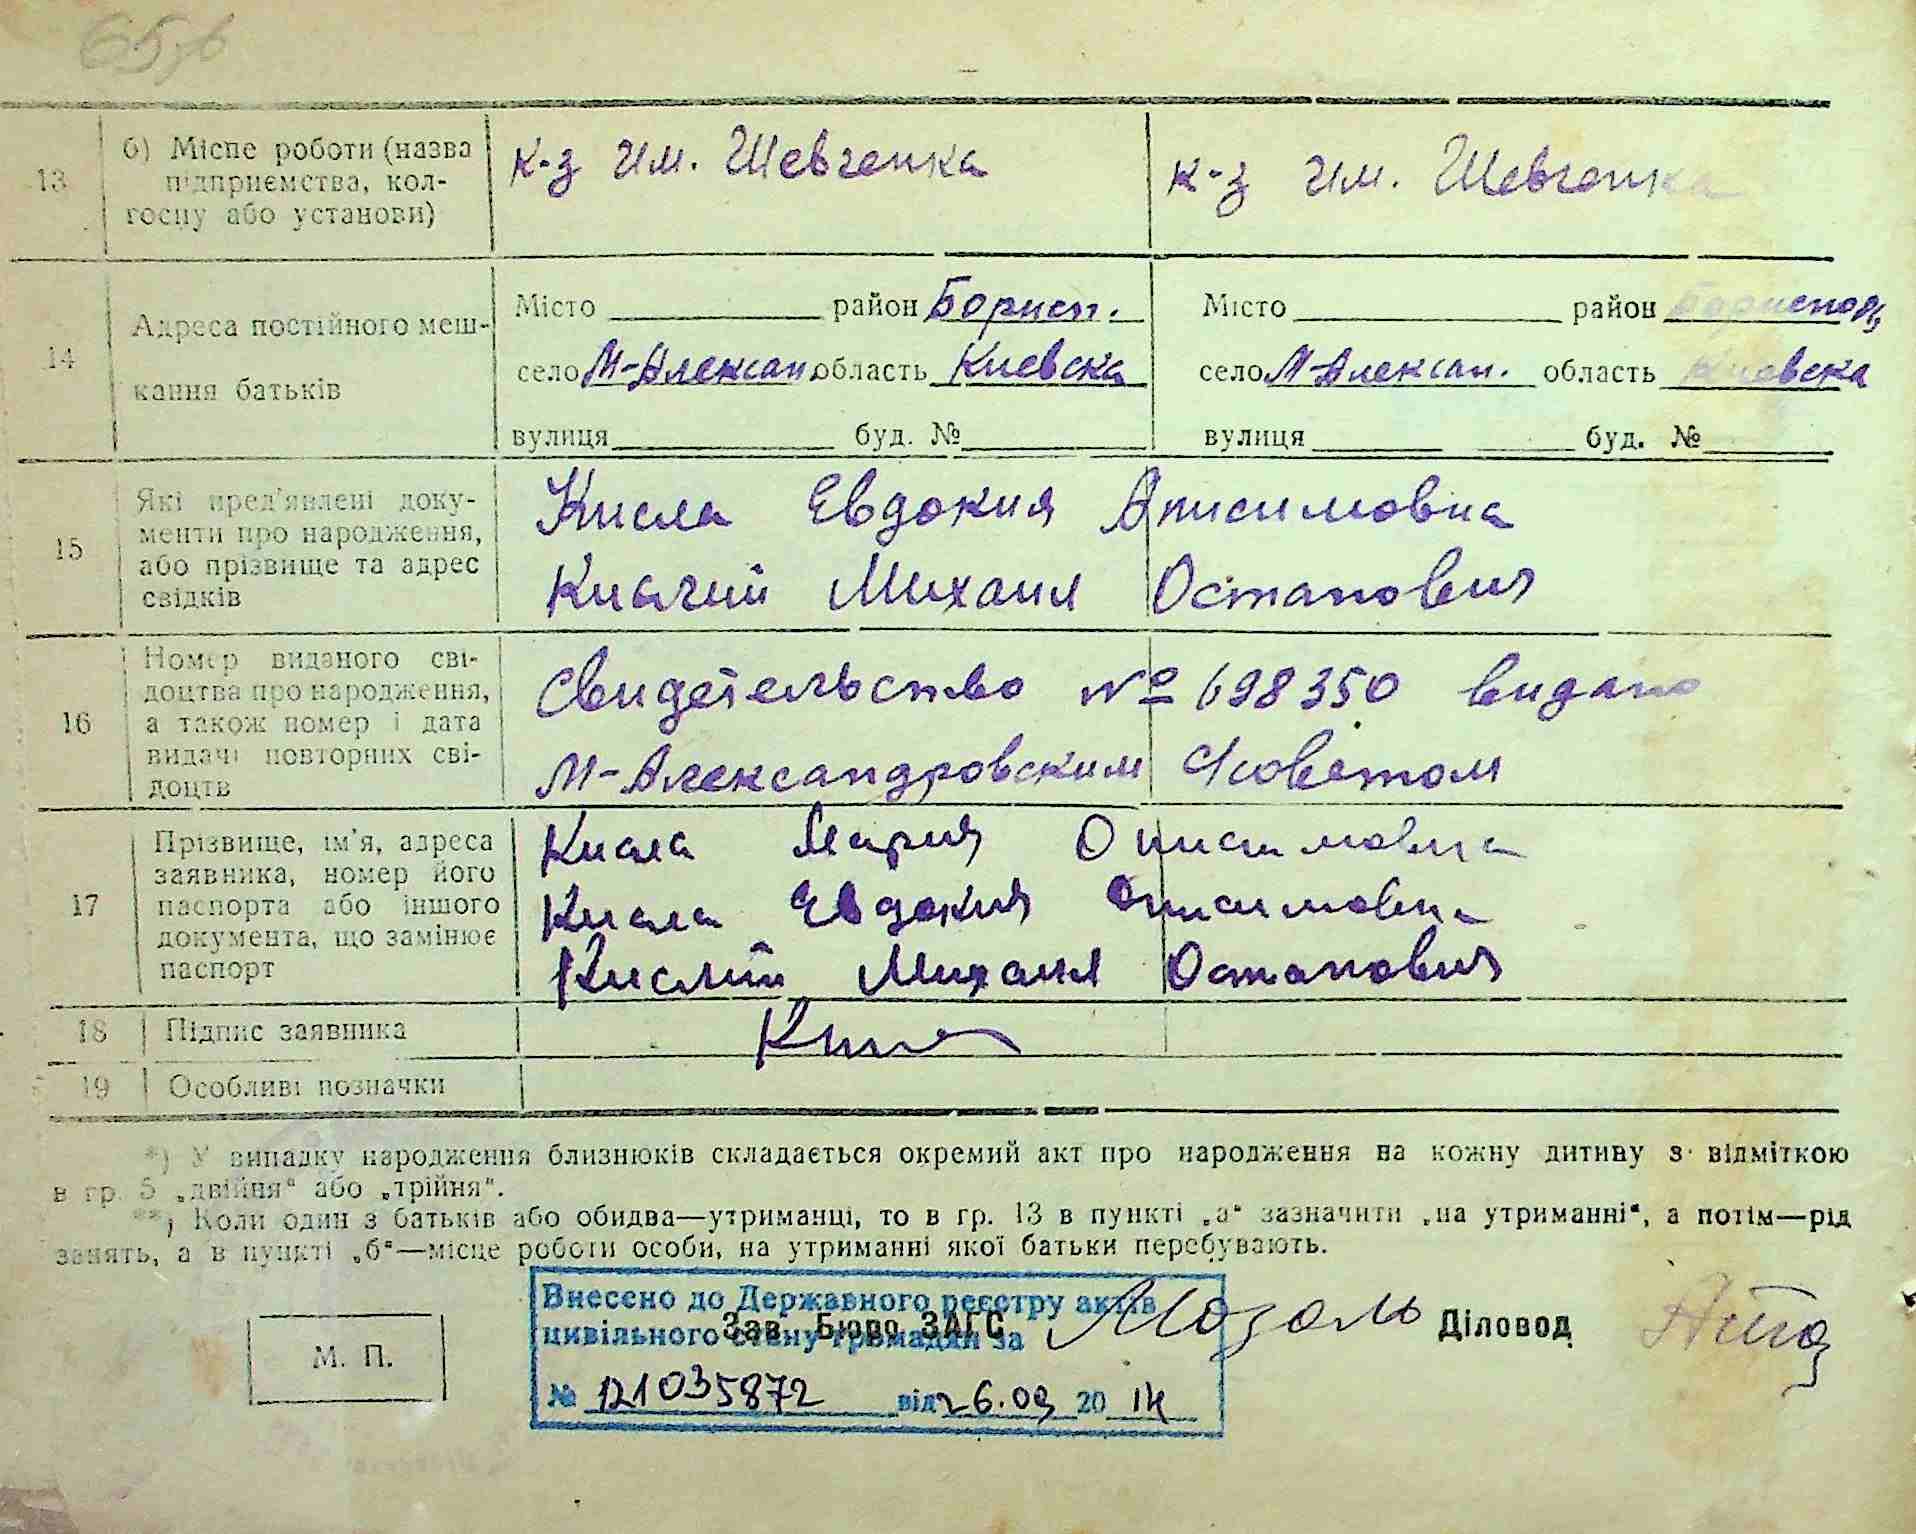 13
б) Місце роботи (назва
підприємства, кол-
госпу або установи)
к-з им. Шевченка
к-з им. Шевченка
14
Адреса постійного меш-
кання батьків
Місто район Борисп.
село М-Алексан. область Киевска
вулиця буд. №
Місто район Бориспол,
село М-Алексан. область Киевска
вулиця буд. №
15
Які пред'явлені доку-
менти про народження,
або прізвище та адрес
свідків
Кисла Евдокия Анисимовна
Кислий Михаил Остапович
16
Номер виданого сві-
доцтва про народження,
а також номер і дата
видачі повторних сві-
доцтв
Свидетельство № 698350 видано
М-Александровским с/советом
17
Прізвище, ім'я, адреса
заявника, номер його
паспорта або іншого
документа, що замінює
паспорт
Кисла Мария Онисимовна
Кисла Евдокия Онисимовна
Кислий Михаил Остапович
18
Підпис заявника
19
Особливі позначки
*) У випадку народження близнюків складається окремий акт про народження на кожну дитину з відміткою
в гр. 5 „двійня“ або „трійня“.
**) Коли один з батьків або обидва—утриманці, то в гр. 13 в пункті „а“ зазначити „на утриманні“, а потім—рід
занять, а в пункті „б“—місце роботи особи, на утриманні якої батьки перебувають.
М. П.
Внесено до Державного реєстру актів
цивільного стану громадян за
№ 121035872 від 26.09 2014
Зав. Бюро ЗАГС Мозоль Діловод